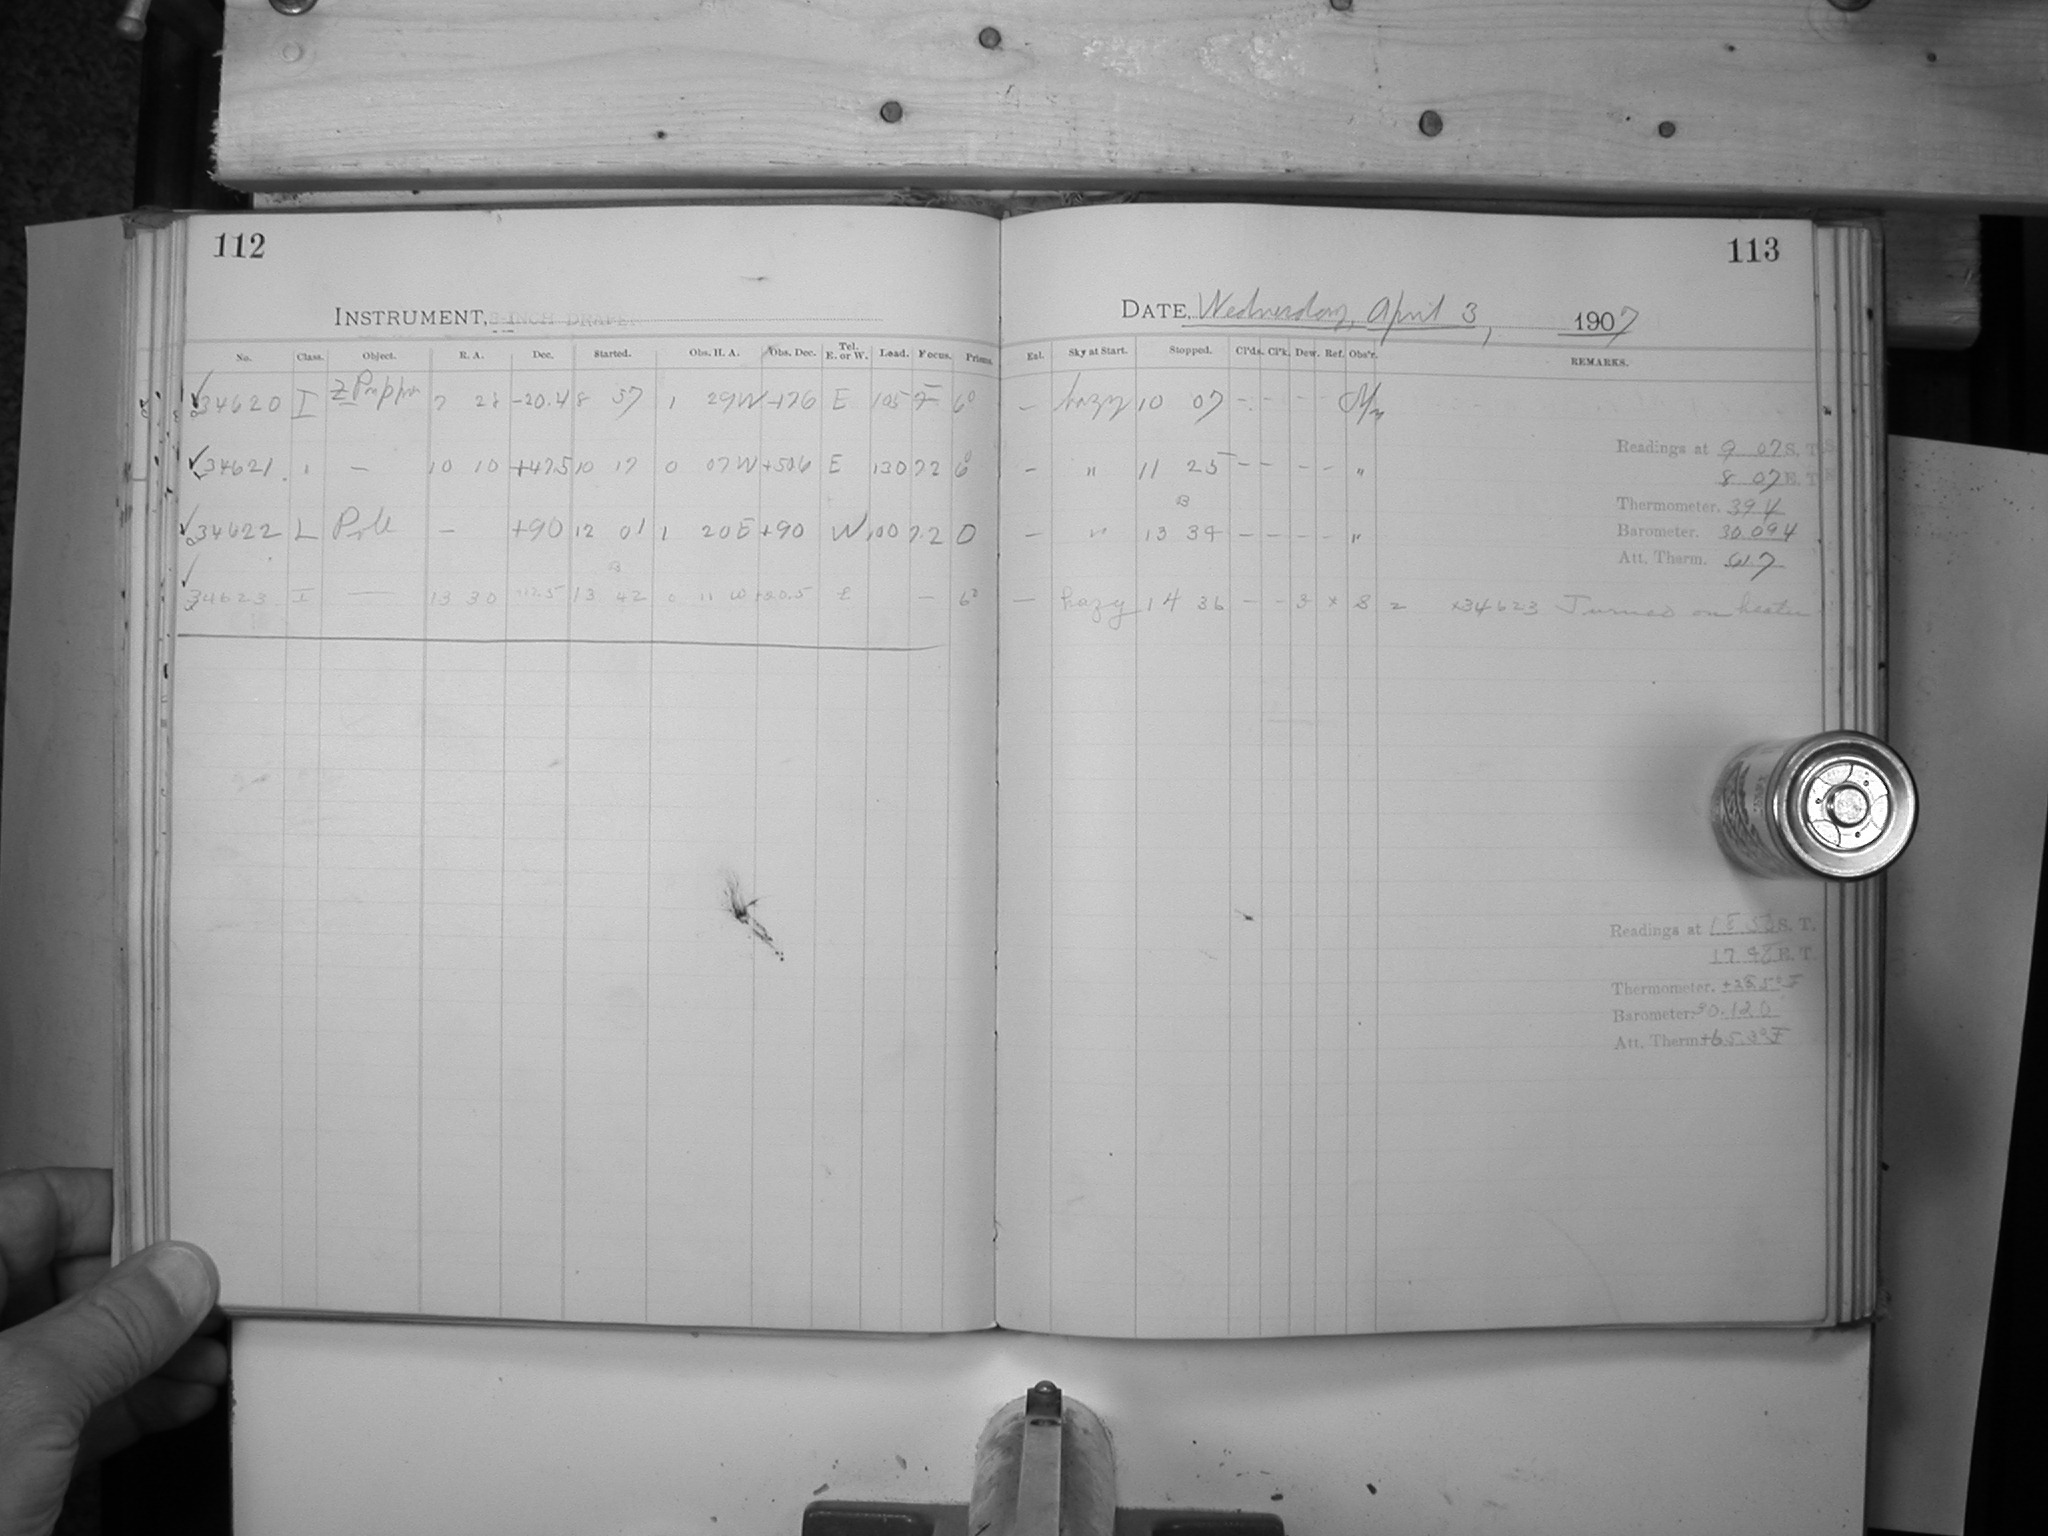 112
INSTRUMENT, 8-INCH DRAPER
No. Class. Object. R. A. Dec. Started. Obs. H. A. Obs. Dec. Tel. E. or W. Lead. Focus. Prisms.
34620 I 7 28 -20.4 8 57 1 29 W +76 E 105 F 6°
34621 " — 10 10 +47.5 10 17 0 07 W +50.6 E 130 7.2 6°
34622 L Pole — +90 12 01 1 20 E +90 W 100 7.2 0
34623 I — 13 30 13 42 0 11 W +20.5 E — 6°
113
DATE, Wednesday, April 3, 1907
Eal. Sky at Start. Stopped. Cl'ds. Cl'k. Dew. Ref. Obs'r. REMARKS.
— hazy 10 07 - - - -
— " 11 25 - - - - "
— " 13 34 - - - - "
— hazy 14 36 - - 3 × 8 2 ×34623 Turned on heater
Readings at 9 07 S. T.
8 07 E. T.
Thermometer. 39.4
Barometer. 30.094
Att. Therm. 61.7
Readings at S. T.
E. T.
Thermometer.
Barometer. 30.120
Att. Therm. +65.3°F